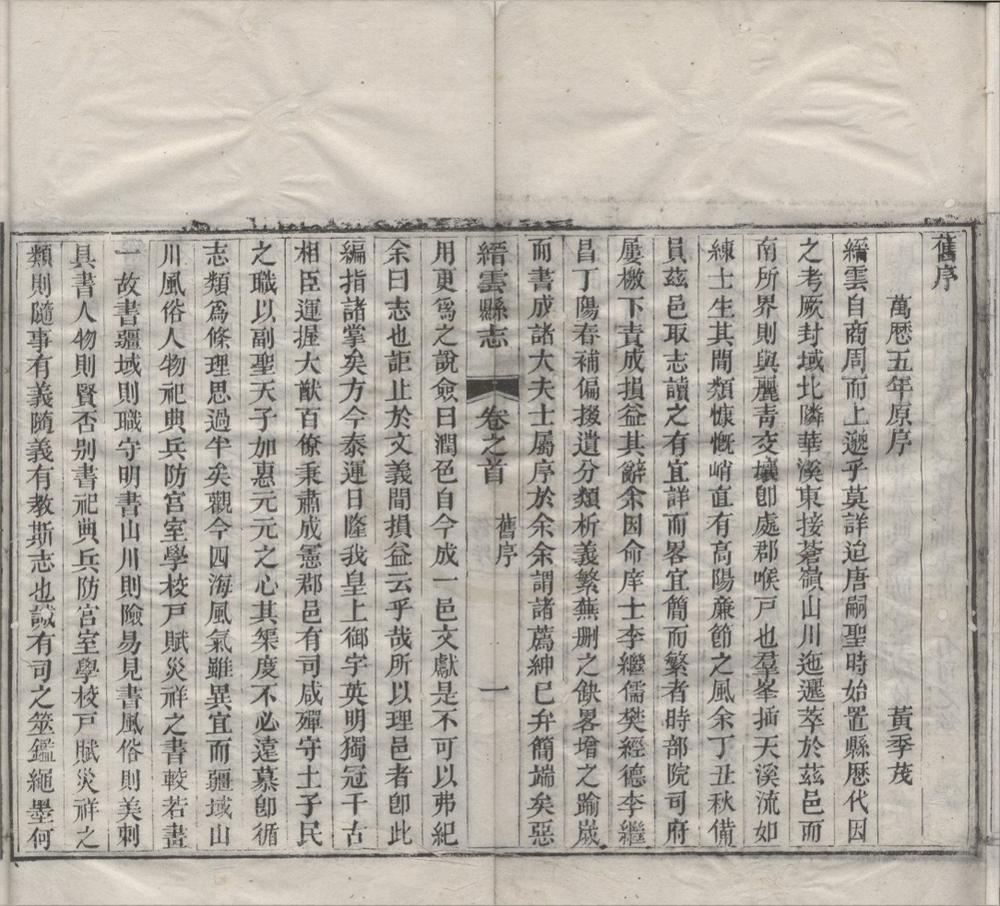 舊序
萬曆五年原序
黃季茂
縉雲自商周而上邈乎莫詳迨唐嗣聖時始置縣歷代因
之考厥封域北隣華溪東接蒼嶺山川迤邐萃於茲邑而
南所界則與麗靑交壤卽處郡喉戸也羣峯插天溪流如
練士生其間類慷慨峭直有高陽亷節之風余丁丑秋備
員茲邑取志讀之有宜詳而畧宜簡而繁者時部院司府
屢檄下責成損益其辭余因命庠士李繼儒樊經德李繼
昌丁陽春補偏掇遺分類析義繁蕪删之缺畧增之踰嵗
而書成諸大夫士屬序於余余謂諸薦紳巳弁簡端矣惡
縉雲縣志
卷之首
舊序
一
用更爲之說僉曰潤色自今成一邑文獻是不可以弗紀
余曰志也詎止於文義間損益云乎哉所以理邑者卽此
編指諸掌矣方今泰運日隆我皇上御宇英明獨冠千古
相臣運握大猷百僚秉肅成憲郡邑有司咸殫守土子民
之職以副聖天子加惠元元之心其榘度不必遠慕卽循
志類爲條理思過半矣觀今四海風氣雖異宜而疆域山
川風俗人物祀典兵防宮室學校戸賦災祥之書較若畫
一故書疆域則職守明書山川則險易見書風俗則美刺
具書人物則賢否别書祀典兵防宮室學校戸賦災祥之
類則隨事有義隨義有教斯志也誠有司之筮鑑繩墨何